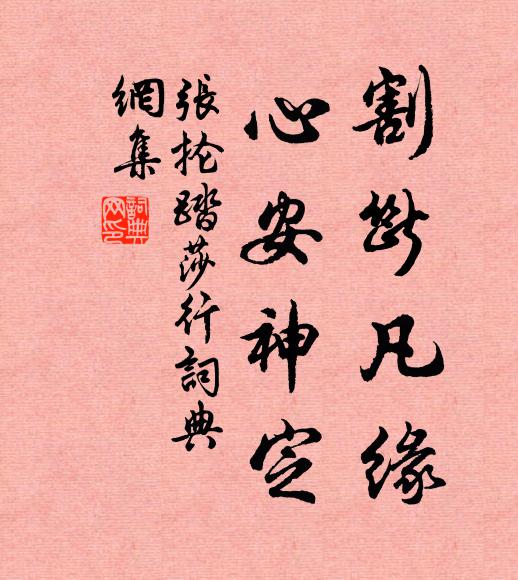 割断凡缘
心安神定
張抡踏莎行詞典
網集
詞典
网印